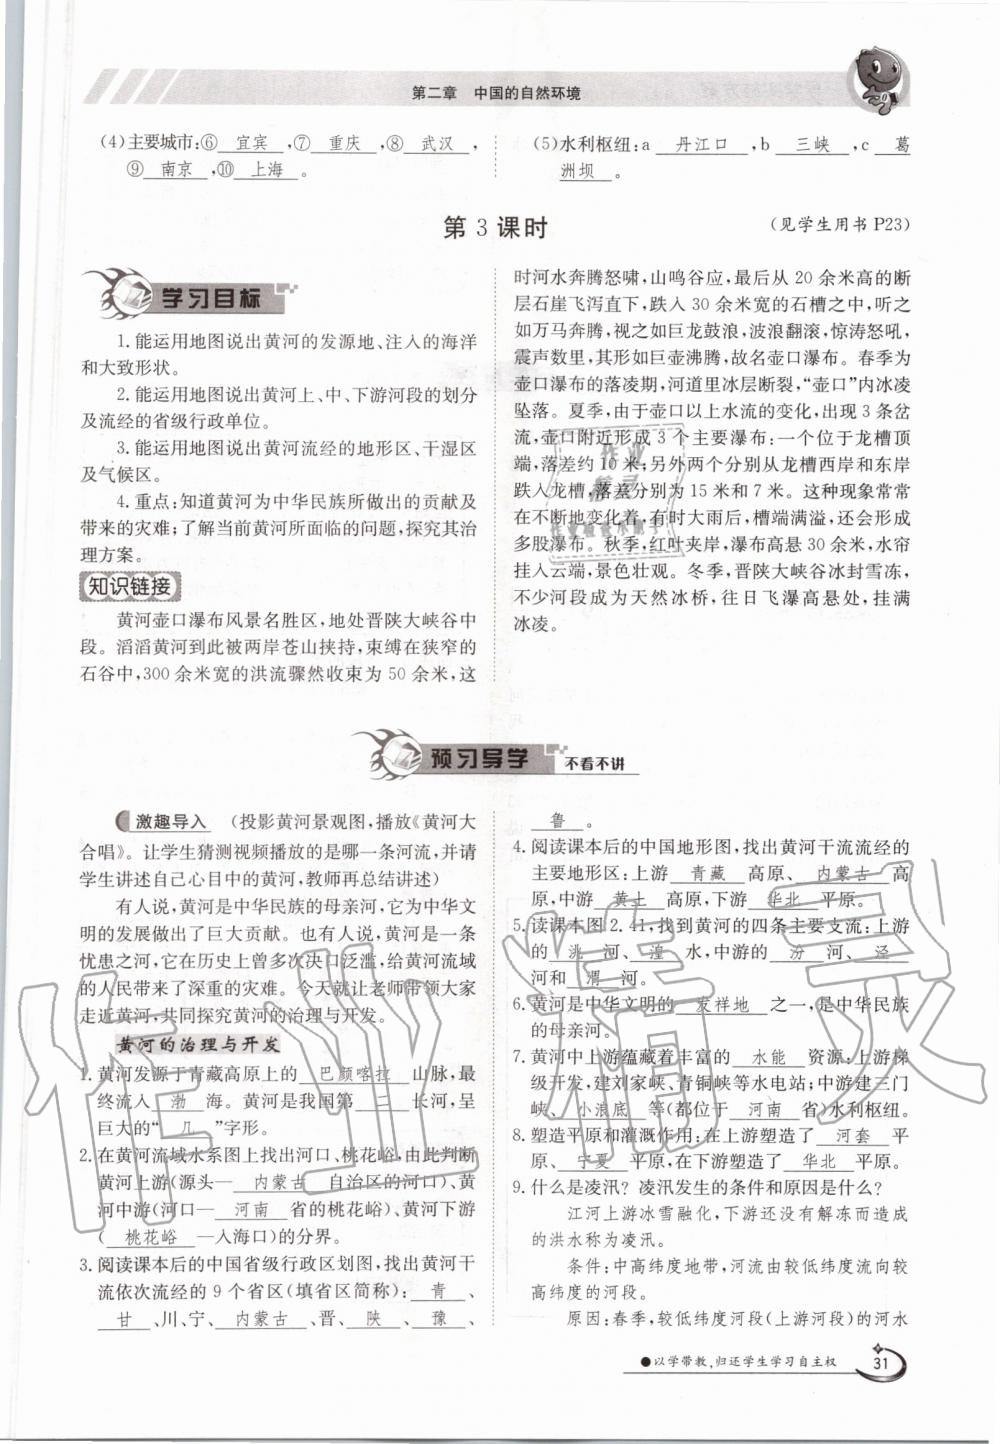 第二章　中国的自然环境
(4)主要城市:⑥ 宜宾 ,⑦ 重庆 ,⑧ 武汉 ,
⑨ 南京 ,⑩ 上海 。
(5)水利枢纽:a 丹江口 ,b 三峡 ,c 葛
洲坝 。
第 3 课时
(见学生用书 P23)
学习目标
1.能运用地图说出黄河的发源地、注入的海洋
和大致形状。
2.能运用地图说出黄河上、中、下游河段的划分
及流经的省级行政单位。
3.能运用地图说出黄河流经的地形区、干湿区
及气候区。
4.重点:知道黄河为中华民族所做出的贡献及
带来的灾难;了解当前黄河所面临的问题,探究其治
理方案。
知识链接
黄河壶口瀑布风景名胜区,地处晋陕大峡谷中
段。滔滔黄河到此被两岸苍山挟持,束缚在狭窄的
石谷中,300 余米宽的洪流骤然收束为 50 余米,这
时河水奔腾怒啸,山鸣谷应,最后从 20 余米高的断
层石崖飞泻直下,跌入 30 余米宽的石槽之中,听之
如万马奔腾,视之如巨龙鼓浪,波浪翻滚,惊涛怒吼,
震声数里,其形如巨壶沸腾,故名壶口瀑布。春季为
壶口瀑布的落凌期,河道里冰层断裂,“壶口”内冰凌
坠落。夏季,由于壶口以上水流的变化,出现 3 条岔
流,壶口附近形成 3 个主要瀑布:一个位于龙槽顶
端,落差约 10 米;另外两个分别从龙槽西岸和东岸
跌入龙槽,落差分别为 15 米和 7 米。这种现象常常
在不断地变化着,有时大雨后,槽端满溢,还会形成
多股瀑布。秋季,红叶夹岸,瀑布高悬 30 余米,水帘
挂入云端,景色壮观。冬季,晋陕大峡谷冰封雪冻,
不少河段成为天然冰桥,往日飞瀑高悬处,挂满
冰凌。
预习导学 不看不讲
激趣导入 (投影黄河景观图,播放《黄河大
合唱》。让学生猜测视频播放的是哪一条河流,并请
学生讲述自己心目中的黄河,教师再总结讲述)
有人说,黄河是中华民族的母亲河,它为中华文
明的发展做出了巨大贡献。也有人说,黄河是一条
忧患之河,它在历史上曾多次决口泛滥,给黄河流域
的人民带来了深重的灾难。今天就让老师带领大家
走近黄河,共同探究黄河的治理与开发。
黄河的治理与开发
1.黄河发源于青藏高原上的 巴颜喀拉 山脉,最
终流入 渤 海。黄河是我国第 二 长河,呈
巨大的“ 几 ”字形。
2.在黄河流域水系图上找出河口、桃花峪,由此判断
黄河上游(源头— 内蒙古 自治区的河口)、黄
河中游(河口— 河南 省的桃花峪)、黄河下游
( 桃花峪 —入海口)的分界。
3.阅读课本后的中国省级行政区划图,找出黄河干
流依次流经的 9 个省区(填省区简称): 青 、
甘 、川、宁、 内蒙古 、晋、 陕 、 豫 、
鲁 。
4.阅读课本后的中国地形图,找出黄河干流流经的
主要地形区:上游 青藏 高原、 内蒙古 高
原,中游 黄土 高原,下游 华北 平原。
5.读课本图 2.41,找到黄河的四条主要支流:上游
的 洮 河、 湟 水,中游的 汾 河、 泾
河和 渭 河。
6.黄河是中华文明的 发祥地 之一,是中华民族
的母亲河。
7.黄河中上游蕴藏着丰富的 水能 资源:上游梯
级开发,建刘家峡、青铜峡等水电站;中游建三门
峡、 小浪底 等(都位于 河南 省)水利枢纽。
8.塑造平原和灌溉作用:在上游塑造了 河套 平
原、 宁夏 平原,在下游塑造了 华北 平原。
9.什么是凌汛? 凌汛发生的条件和原因是什么?
江河上游冰雪融化,下游还没有解冻而造成
的洪水称为凌汛。
条件:中高纬度地带,河流由较低纬度流向较
高纬度的河段。
原因:春季,较低纬度河段(上游河段)的河水
●以学带教,归还学生学习自主权
31
作业精灵